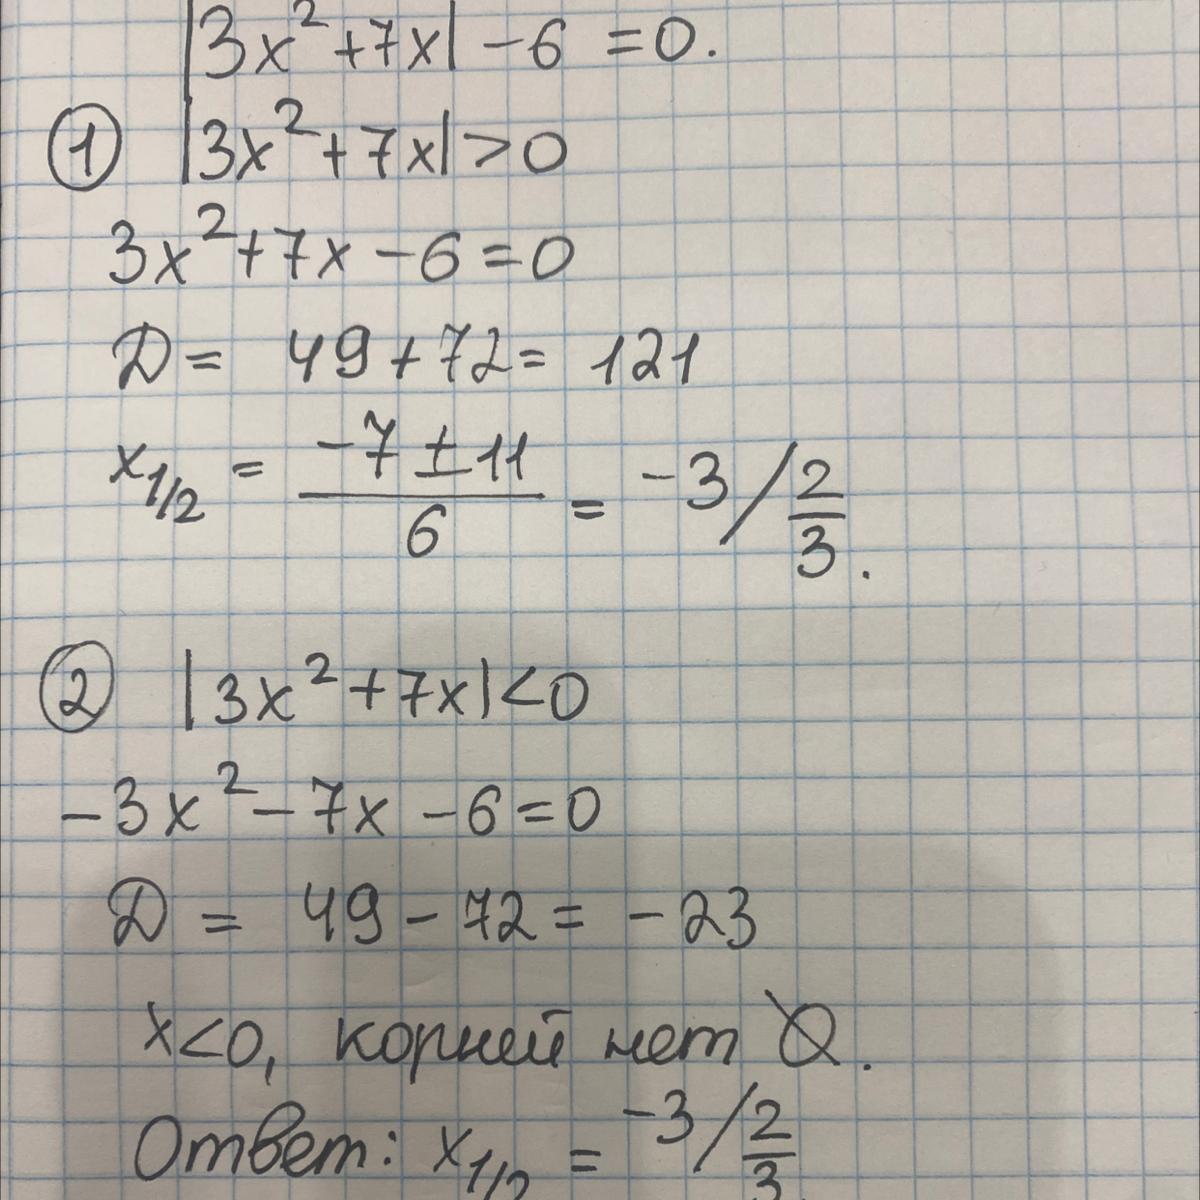 |3x²+7x| −6 =0.
① |3x²+7x|>0
3x²+7x−6=0
D= 49+72= 121
x₁/₂ = (−7±11)/6 = −3 / 2/3.
② |3x²+7x|<0
−3x²−7x −6=0
D = 49−72= −23
x<0, корней нет Ø.
Ответ: x₁/₂ = −3 / 2/3